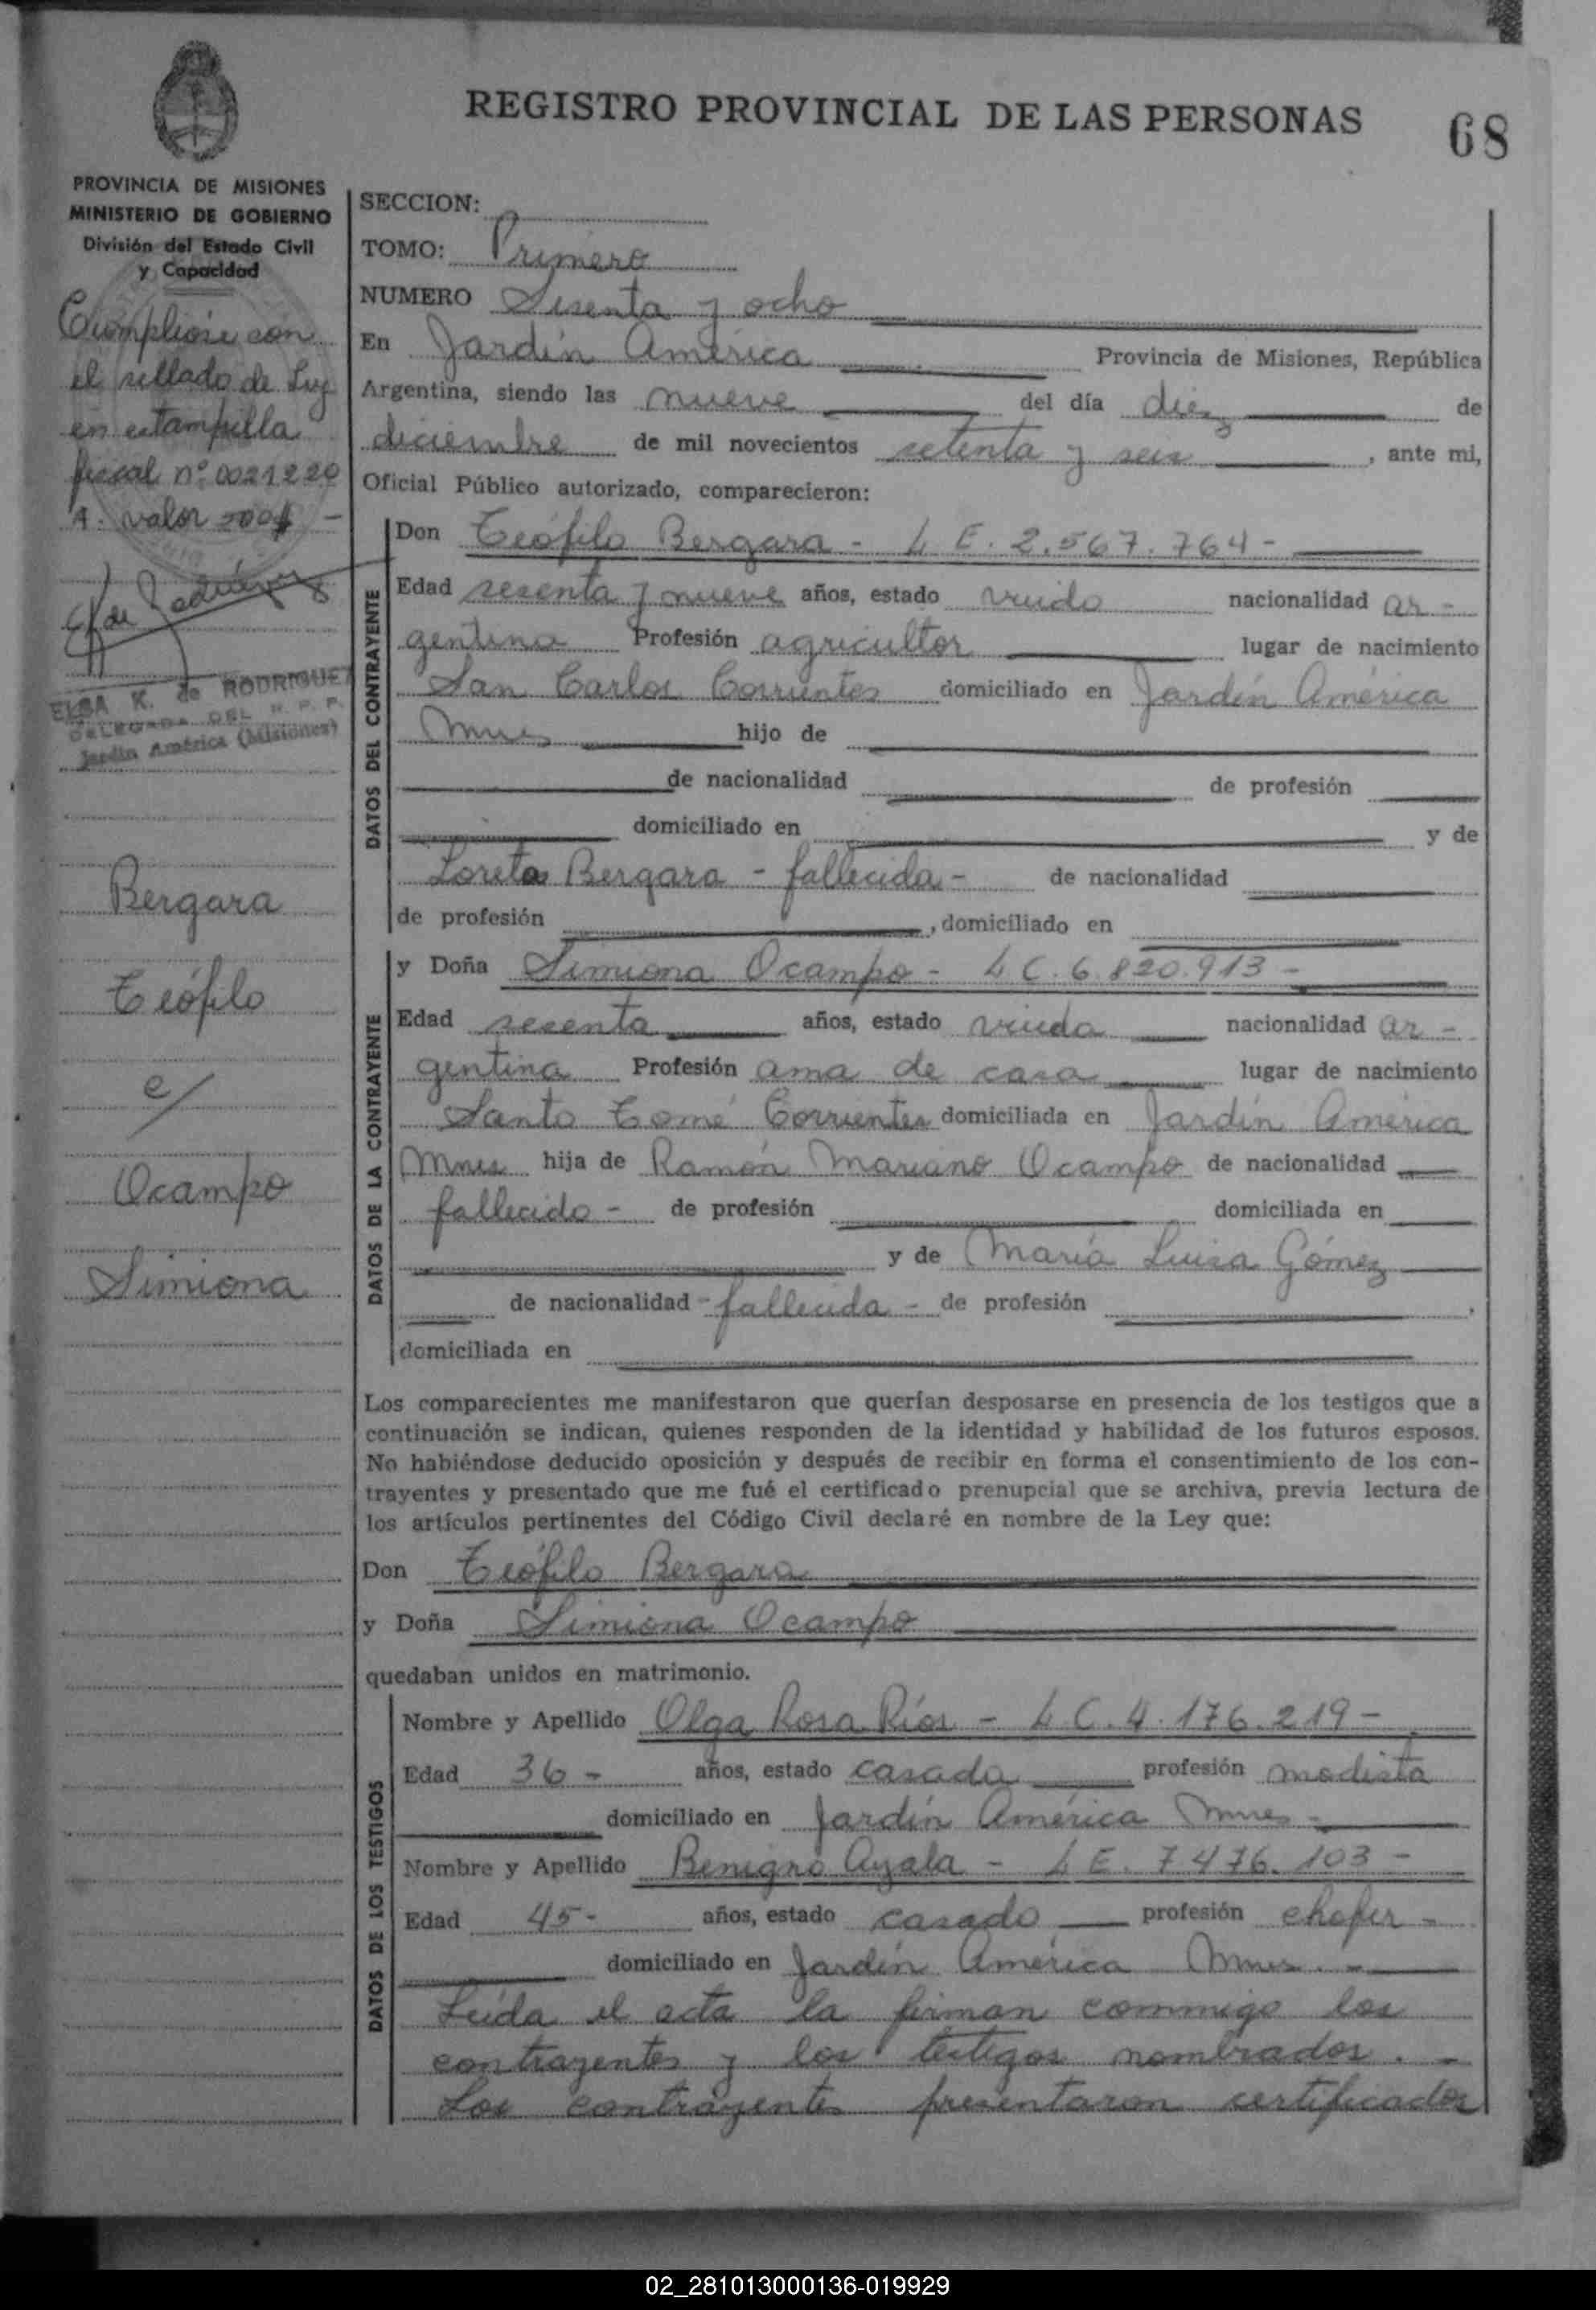 REGISTRO PROVINCIAL DE LAS PERSONAS
68
PROVINCIA DE MISIONES
MINISTERIO DE GOBIERNO
División del Estado Civil
y Capacidad
Cumplióse con
el sellado de Ley
en estampilla
fiscal nº 0021220
A. valor 500$ -
ELSA K. de RODRIGUEZ
DELEGADA DEL R. P. P.
Jardín América (Misiones)
Bergara
Teófilo
c/
Ocampo
Simiona
SECCION:
TOMO: Primero
NUMERO Sesenta y ocho
En Jardín América Provincia de Misiones, República
Argentina, siendo las nueve del día diez de
diciembre de mil novecientos setenta y seis, ante mi,
Oficial Público autorizado, comparecieron:
DATOS DEL CONTRAYENTE
Don Teófilo Bergara - L E. 2.567.764 -
Edad sesenta y nueve años, estado viudo nacionalidad ar -
gentina Profesión agricultor lugar de nacimiento
San Carlos Corrientes domiciliado en Jardín América
Mnes hijo de
de nacionalidad de profesión
domiciliado en y de
Loreta Bergara - fallecida - de nacionalidad
de profesión , domiciliado en
DATOS DE LA CONTRAYENTE
y Doña Simiona Ocampo - L C. 6.820.913 -
Edad sesenta años, estado viuda nacionalidad ar -
gentina Profesión ama de casa lugar de nacimiento
Santo Tomé Corrientes domiciliada en Jardín América
Mnes hija de Ramón Mariano Ocampo de nacionalidad
fallecido - de profesión domiciliada en
y de María Luisa Gómez
de nacionalidad - fallecida - de profesión ,
domiciliada en
Los comparecientes me manifestaron que querían desposarse en presencia de los testigos que a
continuación se indican, quienes responden de la identidad y habilidad de los futuros esposos.
No habiéndose deducido oposición y después de recibir en forma el consentimiento de los con-
trayentes y presentado que me fué el certificado prenupcial que se archiva, previa lectura de
los artículos pertinentes del Código Civil declaré en nombre de la Ley que:
Don Teófilo Bergara
y Doña Simiona Ocampo
quedaban unidos en matrimonio.
DATOS DE LOS TESTIGOS
Nombre y Apellido Olga Rosa Ríos - L. C. 4.176.219 -
Edad 36 - años, estado casada profesión modista
domiciliado en Jardín América Mnes -
Nombre y Apellido Benigno Ayala - L E. 7.476.103 -
Edad 45 - años, estado casado profesión chofer -
domiciliado en Jardín América Mnes. -
Leída el acta la firman commigo los
contrayentes y los testigos nombrados. -
Los contrayentes presentaron certificados
02_281013000136-019929